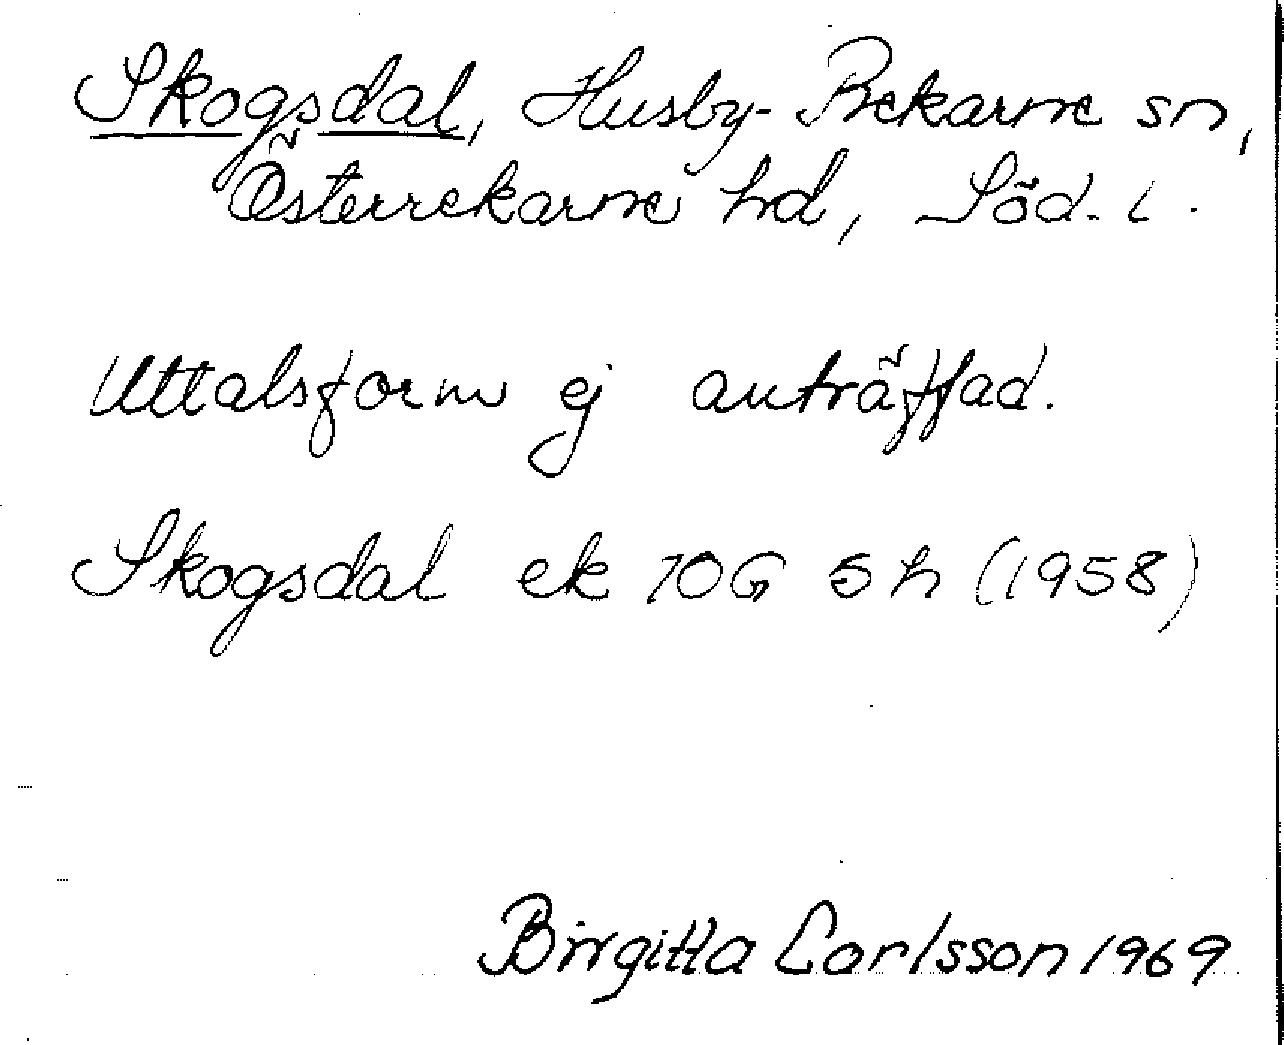 Skogsdal, Husby-Rekarne sn,
Österrekarne hd, Söd. l.
Uttalsform ej anträffad.
Skogsdal ek 10G 5h (1958)
Birgitta Carlsson 1969